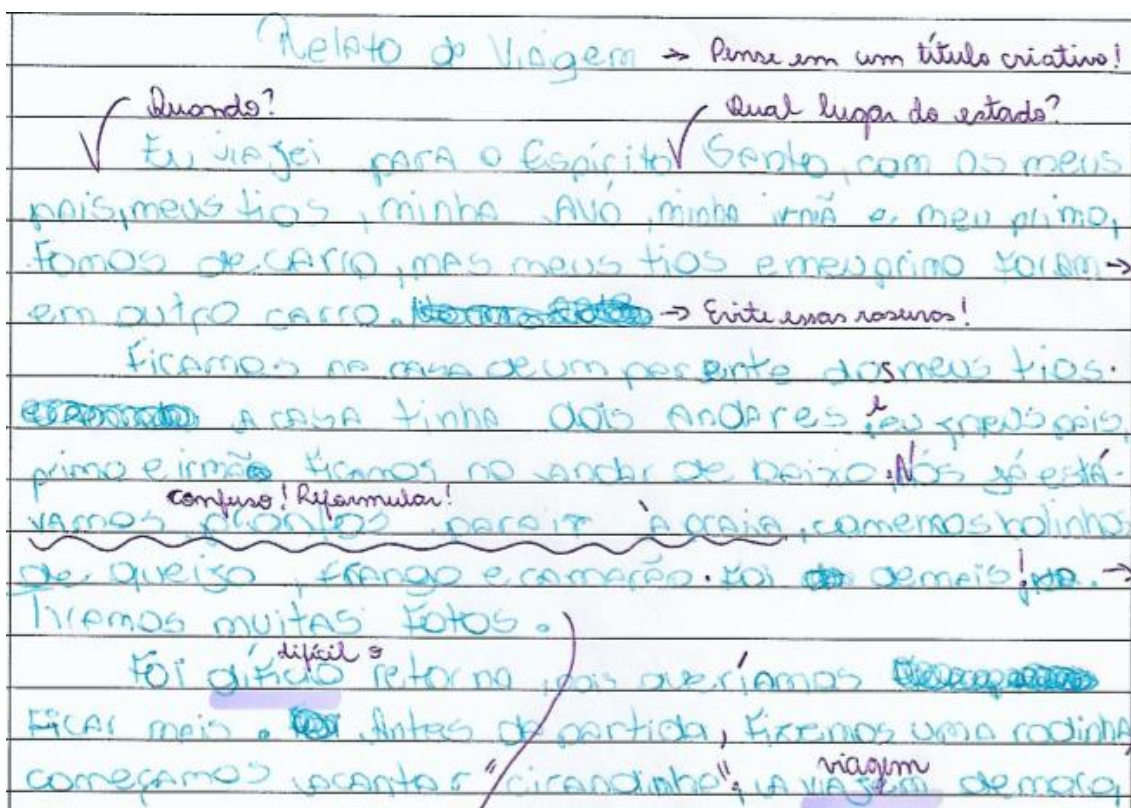 Relato de Viagem → Pense em um título criativo!
Quando? Qual lugar do estado?
Eu viajei para o Espírito Santo, com os meus
pais, meus tios, minha avó, minha irmã e meu primo,
Fomos de carro, mas meus tios e meu primo foram →
em outro carro. → Evite essas rasuras!
Ficamos na casa de um parente dos meus tios.
A casa tinha dois andares e eu, meus pais,
primo e irmão ficamos no andar de baixo. Nós já está-
confuso! Reformular!
vamos prontos para ir à praia, comemos bolinhos
de queijo, frango e camarão. Foi demais! →
Tiramos muitas fotos.
difícil o
Foi difício retorno, pois queríamos
Ficar mais. Antes da partida, fizemos uma rodinha,
viagem
começamos a cantar "cirandinha". A viajem demoro,